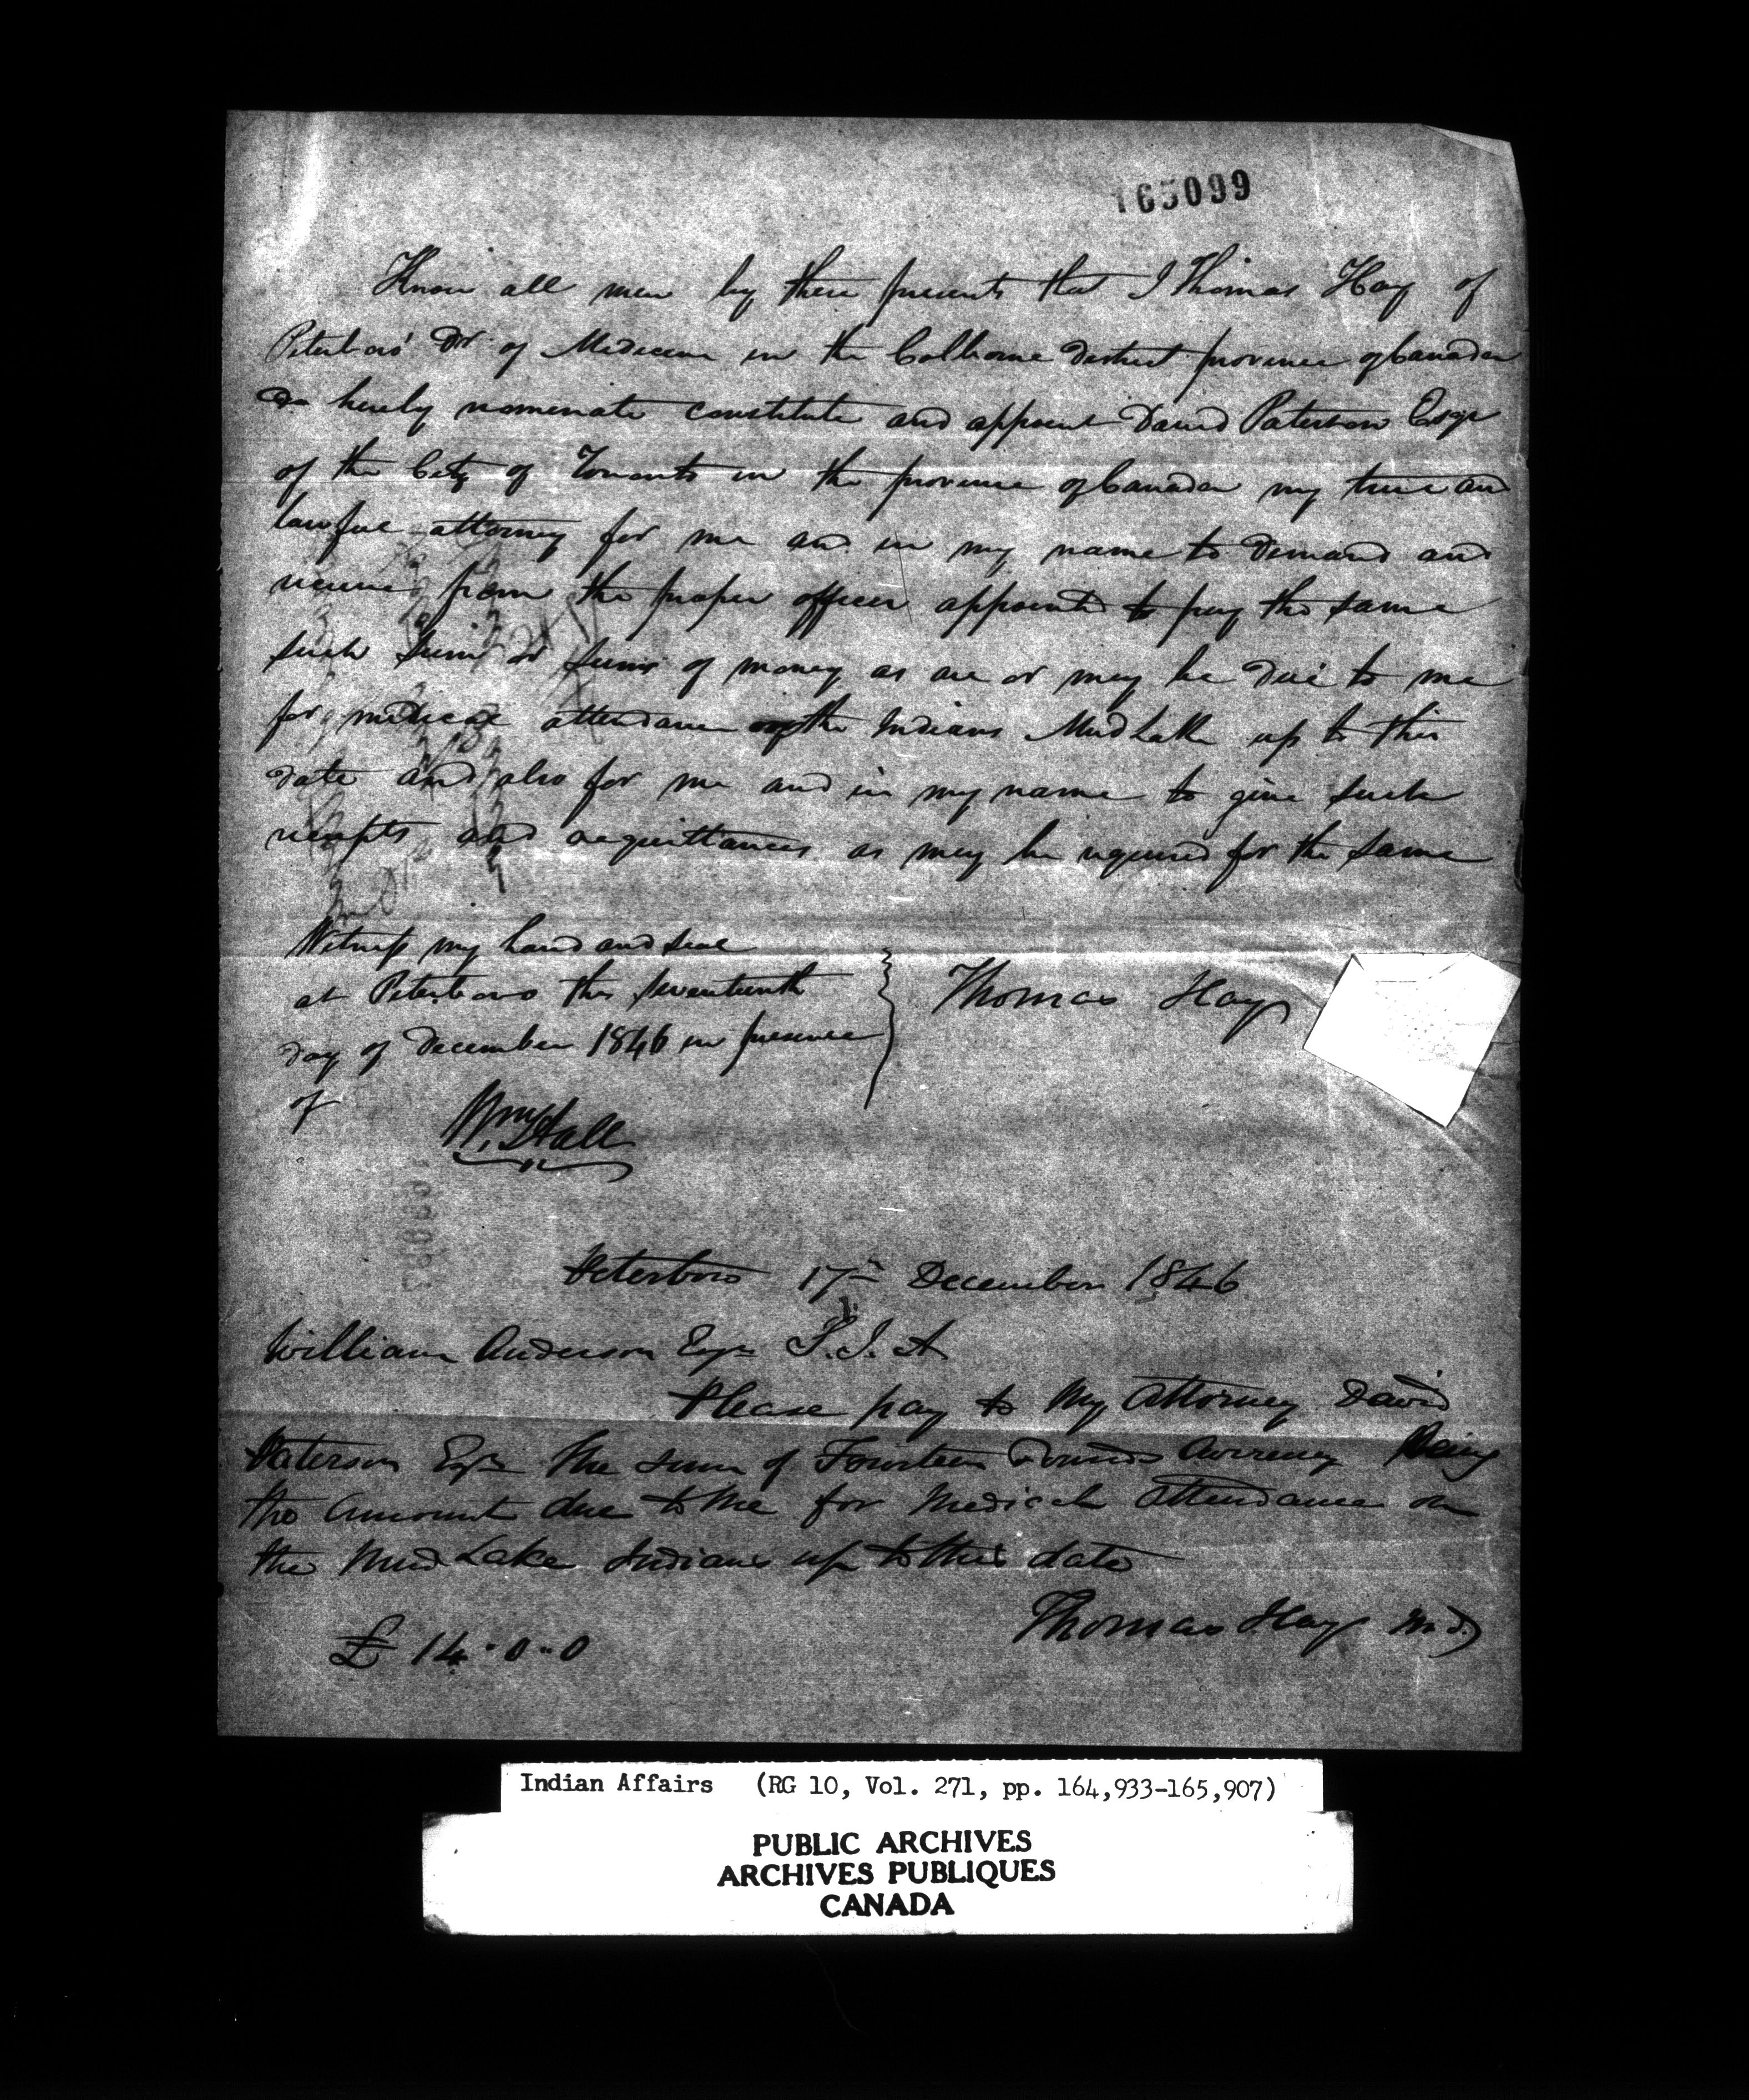 165099
Know all men by these presents that I Thomas Hay of
Peterboro' Dr of Medicine in the Colborne District province of Canada
Do hereby nominate constitute and appoint David Paterson Esqr
of the City of Toronto in the province of Canada my true and
lawful attorney for me and in my name to demand and
receive from the proper officer appointed to pay the same
such sum or sums of money as are or may be due to me
for medical attendance the Indians Mud Lake up to this
date and also for me and in my name to give such
receipts and acquittances as may be required for the same
Witness my hand and seal
at Peterboro this seventeenth
day of December 1846 in presence
of
Thomas Hay
Wm Hall
Peterboro 17th December 1846
William Anderson Esqr S.I.A
Please pay to my Attorney David
Paterson Esqr the sum of Fourteen Pounds Currency Being
the Amount due to me for Medical attendance on
the Mud Lake Indians up to this date
Thomas Hay M.D.
£ 14 " 0 " 0
Indian Affairs (RG 10, Vol. 271, pp. 164,933-165,907)
PUBLIC ARCHIVES
ARCHIVES PUBLIQUES
CANADA